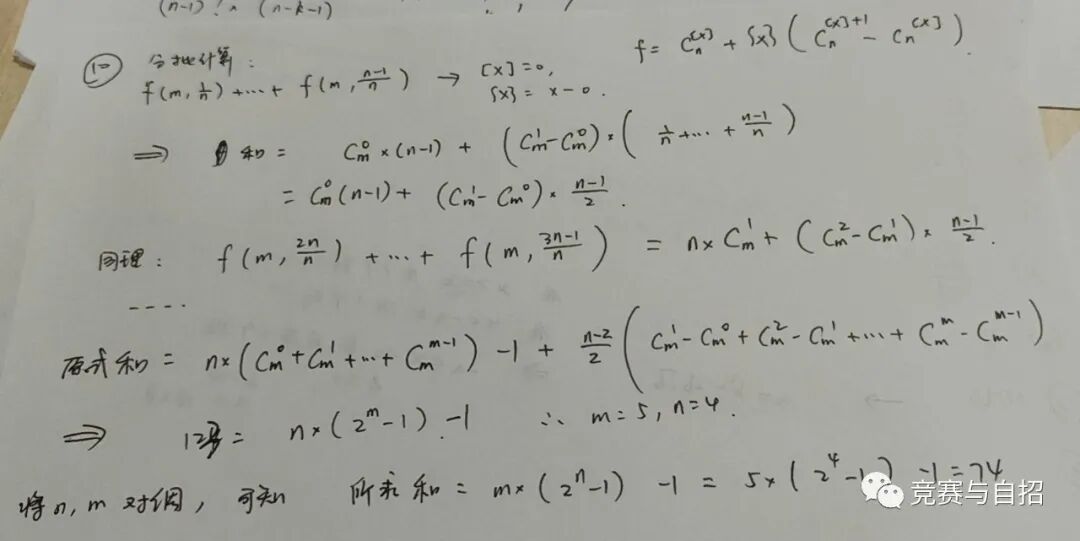 (n-1)! × (n-k-1)
⑩ 分批计算: f = C_n^{[x]} + {x} ( C_n^{[x]+1} - C_n^{[x]} ).
f(m, 1/n) + ··· + f(m, (n-1)/n) → [x]=0,
{x} = x-0.
⇒ 和 = C_m^0 × (n-1) + (C_m^1 - C_m^0) × ( 1/n + ··· + (n-1)/n )
= C_m^0 (n-1) + (C_m^1 - C_m^0) × (n-1)/2.
同理: f(m, 2n/n) + ··· + f(m, (3n-1)/n) = n × C_m^1 + (C_m^2 - C_m^1) × (n-1)/2.
----.
原式和 = n × (C_m^0 + C_m^1 + ··· + C_m^{m-1}) - 1 + (n-2)/2 ( C_m^1 - C_m^0 + C_m^2 - C_m^1 + ··· + C_m^m - C_m^{m-1} )
⇒ 123 = n × (2^m - 1) - 1 ∴ m = 5, n = 4.
将 n, m 对调, 可知 所求和 = m × (2^n - 1) - 1 = 5 × (2^4 - 1) - 1 = 74
竞赛与自招